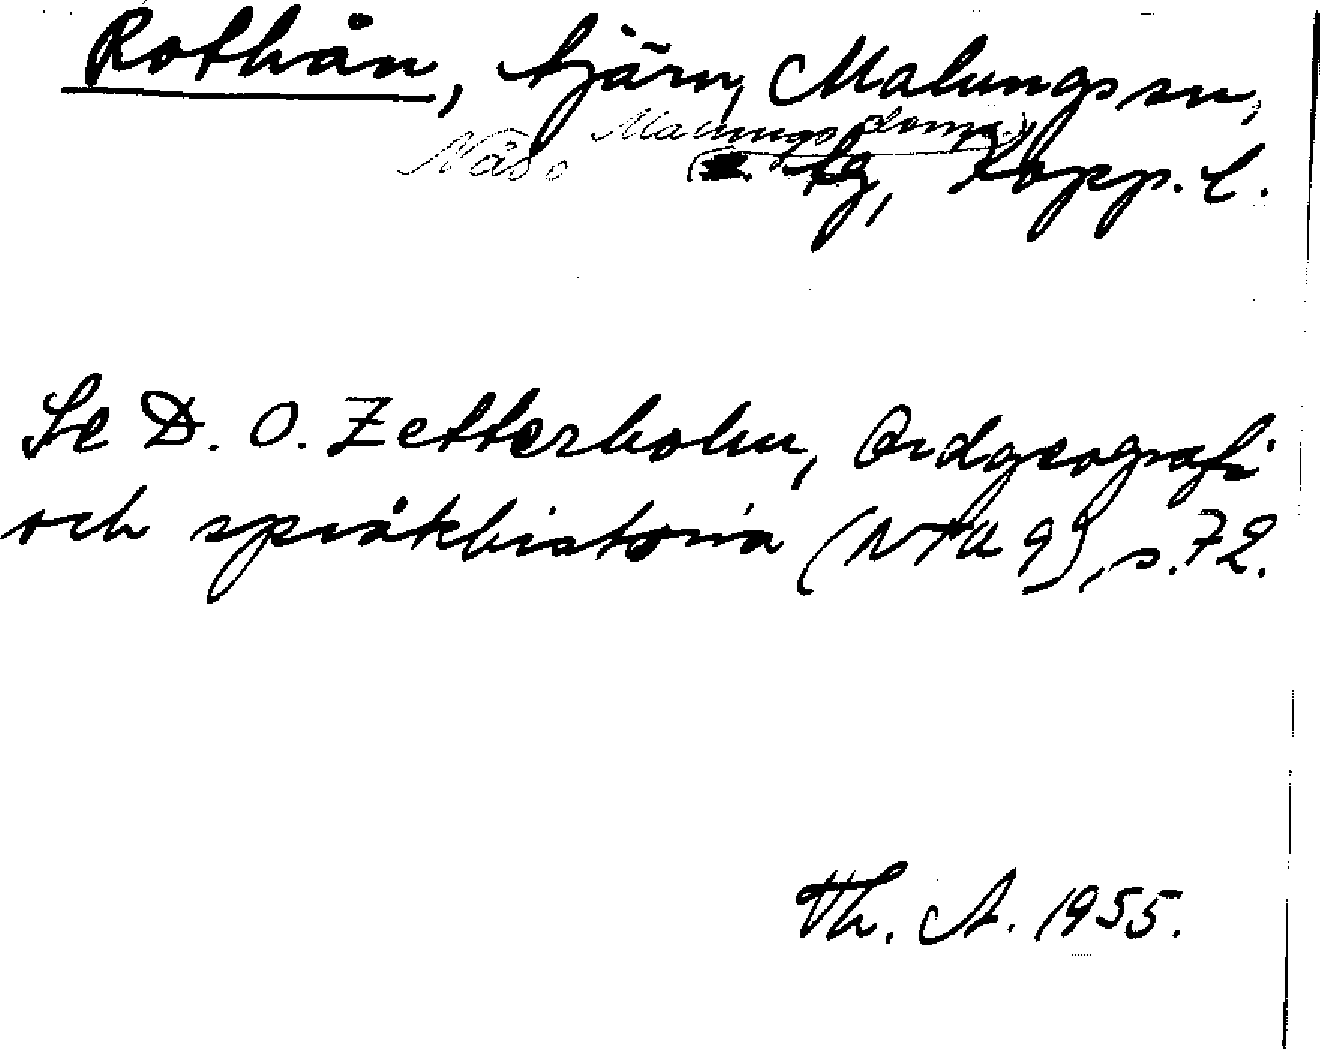 Rothån, tjärn, Malungs sn,
Malungs doms
Näs o tg, Kopp. l.
Se D. O. Zetterholm, Ordgeografi
och språkhistoria (NTU 9), s. 72.
Th. A. 1955.